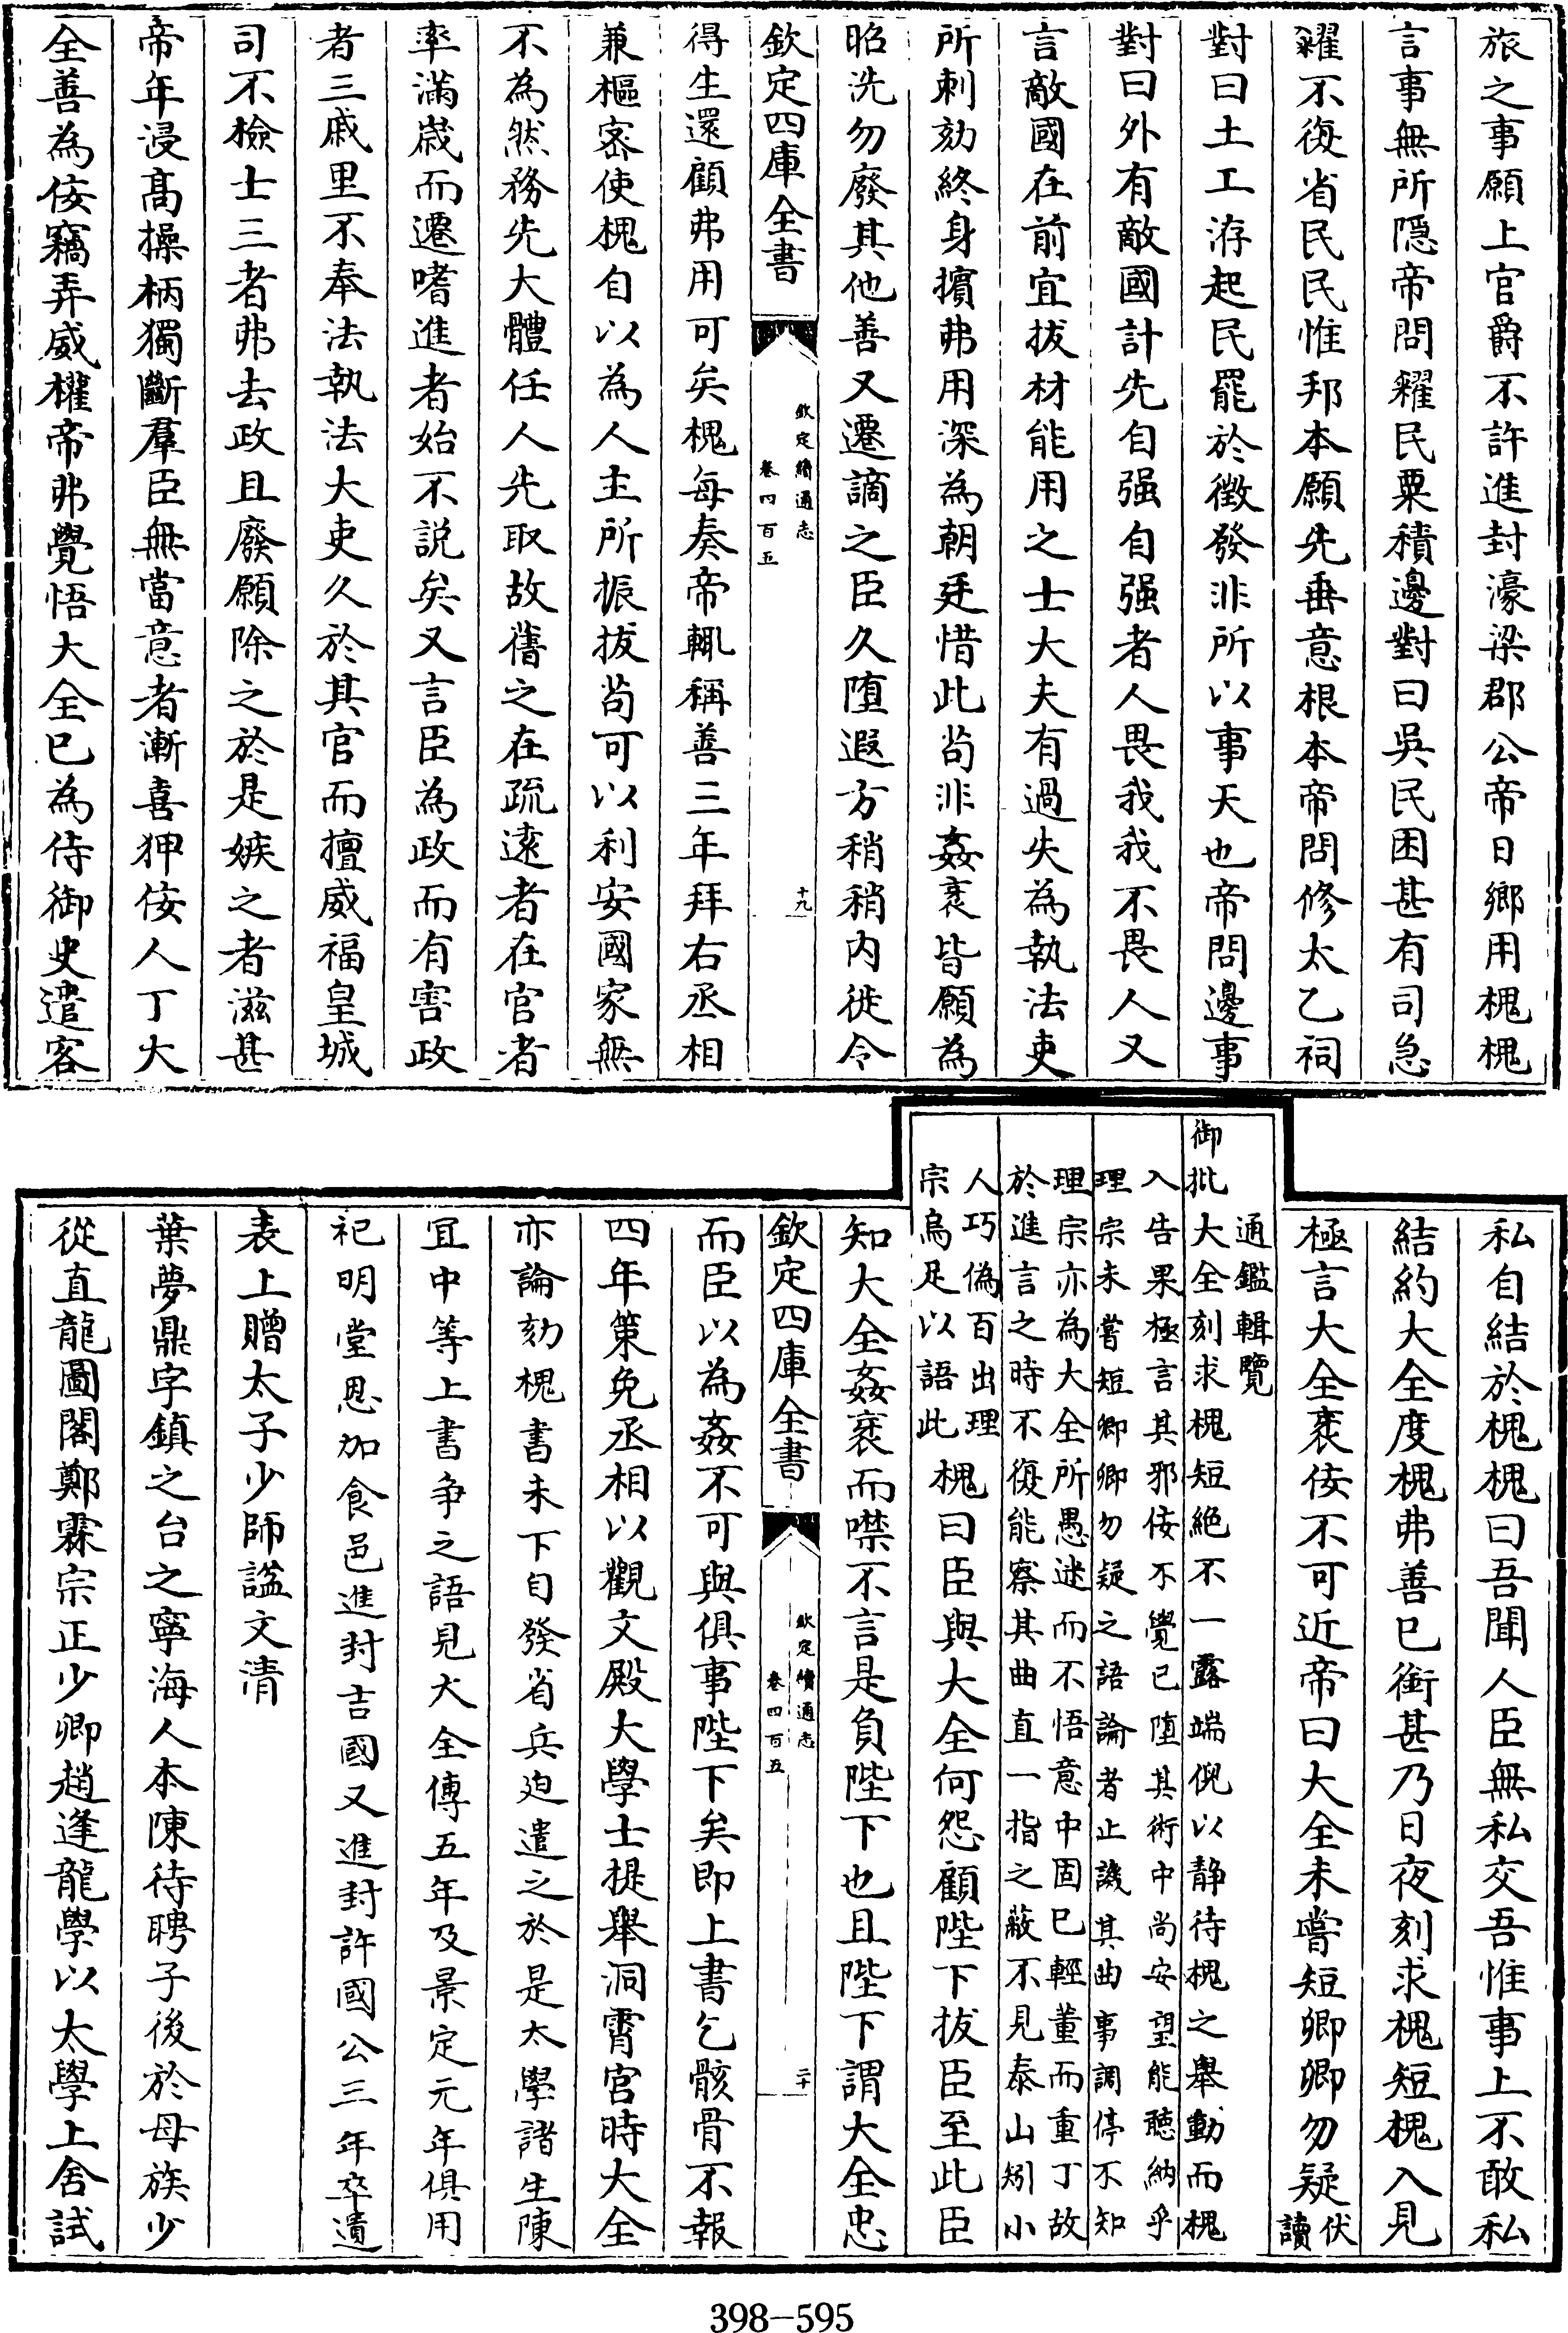 旅之事願上官爵不許進封濠梁郡公帝日鄉用槐槐
言事無所隱帝問糴民粟積邊對曰吳民困甚有司急
糴不復省民民惟邦本願先垂意根本帝問修太乙祠
對曰土工洊起民罷於徵發非所以事天也帝問邊事
對曰外有敵國計先自强自强者人畏我我不畏人又
言敵國在前宜拔材能用之士大夫有過失為執法吏
所刺劾終身擯弗用深為朝廷惜此茍非姦衺皆願為
昭洗勿廢其他善又遷謫之臣久墮遐方稍稍內徙令
欽定四庫全書
欽定續通志
卷四百五
十九
得生還顧弗用可矣槐每奏帝輒稱善三年拜右丞相
兼樞密使槐自以為人主所振拔茍可以利安國家無
不為然務先大體任人先取故舊之在疏遠者在官者
率滿歲而遷嗜進者始不説矣又言臣為政而有害政
者三戚里不奉法執法大吏久於其官而擅威福皇城
司不檢士三者弗去政且廢願除之於是嫉之者滋甚
帝年浸髙操柄獨斷羣臣無當意者漸喜狎佞人丁大
全善為佞竊弄威權帝弗覺悟大全已為侍御史遣客
私自結於槐槐曰吾聞人臣無私交吾惟事上不敢私
結約大全度槐弗善已銜甚乃日夜刻求槐短槐入見
極言大全衺佞不可近帝曰大全未嘗短卿卿勿疑伏
讀
御批
通鑑輯覽
大全刻求槐短絶不一露端倪以靜待槐之舉動而槐
入告果極言其邪佞不覺已墮其術中尚安望能聽納乎
理宗未嘗短卿卿勿疑之語論者止譏其曲事調停不知
理宗亦為大全所愚迷而不悟意中固已輕董而重丁故
於進言之時不復能察其曲直一指之蔽不見泰山矧小
人巧偽百出理
宗烏足以語此
槐曰臣與大全何怨顧陛下拔臣至此臣
知大全姦衺而噤不言是負陛下也且陛下謂大全忠
欽定四庫全書
欽定續通志
卷四百五
二十
而臣以為姦不可與俱事陛下矣即上書乞骸骨不報
四年策免丞相以觀文殿大學士提舉洞霄宫時大全
亦論劾槐書未下自發省兵迫遣之於是太學諸生陳
宜中等上書爭之語見大全傳五年及景定元年俱用
祀明堂恩加食邑進封吉國又進封許國公三年卒遺
表上贈太子少師諡文清
葉夢鼎字鎮之台之寧海人本陳待聘子後於母族少
從直龍圖閣鄭霖宗正少卿趙逢龍學以太學上舍試
398-595